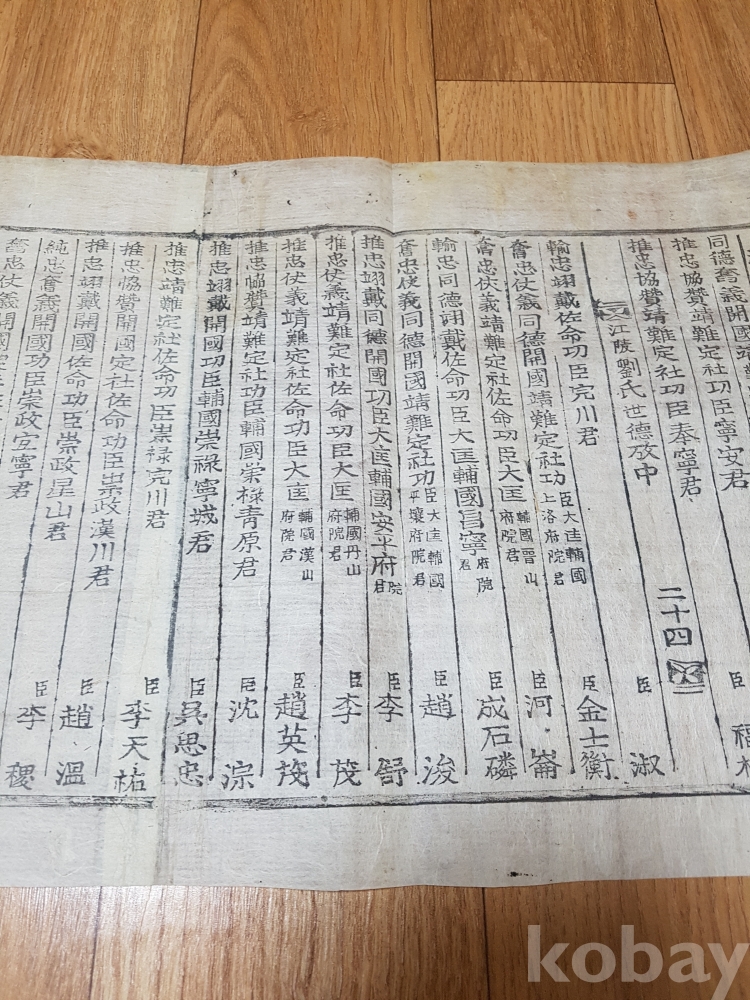 同德奮義開國
寧安君
推忠協贊靖難定社功臣奉寧君 臣 福根
江陵劉氏世德攷中 二十四
輸忠翊戴佐命功臣完川君 臣 淑
奮忠仗義同德開國靖難定社功臣大匡輔國上洛府院君 臣 金士衡
奮忠仗義靖難定社佐命功臣大匡輔國晋山府院君 臣 河崙
輸忠同德翊戴佐命功臣大匡輔國昌寧府院君 臣 成石磷
奮忠仗義同德開國靖難定社功臣大匡輔國平壤府院君 臣 趙浚
推忠翊戴同德開國功臣大匡輔國安平府院君 臣 李舒
推忠仗義靖難定社佐命功臣大匡輔國丹山府院君 臣 李茂
推忠仗義靖難定社佐命功臣大匡輔國漢山府院君 臣 趙英茂
推忠協贊靖難定社佐命功臣輔國崇祿青原君 臣 沈淙
推忠翊戴開國功臣輔國崇祿寧城君 臣 吳思忠
推忠靖難定社佐命功臣崇祿完川君 臣 李天祐
推忠協贊開國定社佐命功臣崇政漢川君 臣 趙溫
推忠翊戴開國佐命功臣崇政星山君 臣 李稷
純忠奮義開國功臣崇政宜寧君
奮忠仗義開國定社佐命
kobay